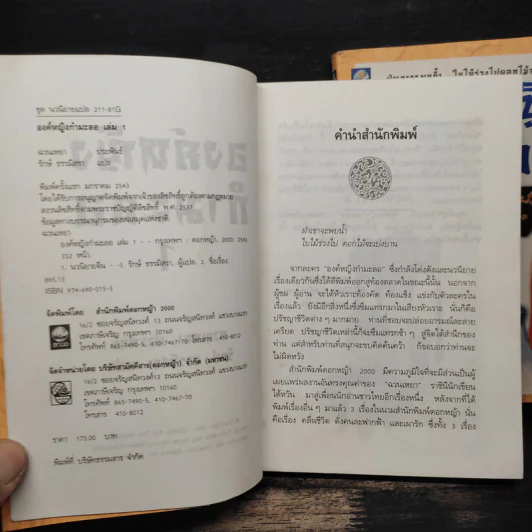 ชุด นวนิยายแปล 211-61G
องค์หญิงกำมะลอ เล่ม 1
ฉวนเหยา ประพันธ์
รักษ์ ธรรมิสรา แปล
พิมพ์ครั้งแรก มกราคม 2543
โดยได้รับการอนุญาตจัดพิมพ์จากเจ้าของลิขสิทธิ์ถูกต้องตามกฎหมาย
สงวนลิขสิทธิ์ตามพระราชบัญญัติลิขสิทธิ์ พ.ศ. 2537
ข้อมูลทางบรรณานุกรมของหอสมุดแห่งชาติ
ฉวนเหยา
องค์หญิงกำมะลอ เล่ม 1 - - กรุงเทพฯ : ดอกหญ้า, 2000, 2543
352 หน้า.
1. นวนิยายจีน - -I. รักษ์ ธรรมิสรา, ผู้แปล. 2. ชื่อเรื่อง.
895.13
ISBN 974-690-015-3
จัดพิมพ์โดย สำนักพิมพ์ดอกหญ้า 2000
16/2 ซอยจรัญสนิทวงศ์ 13 ถนนจรัญสนิทวงศ์ แขวงบางแวก
เขตภาษีเจริญ กรุงเทพฯ 10160
โทรศัพท์ 865-7490-5, 410-7467-70 โทรสาร 410-8012
จัดจำหน่ายโดย บริษัทสามัคคีสาร(ดอกหญ้า) จำกัด (มหาชน)
16/2 ซอยจรัญสนิทวงศ์13 ถนนจรัญสนิทวงศ์ แขวงบางแวก
เขตภาษีเจริญ กรุงเทพฯ 10160
โทรศัพท์ 865-7490-5, 410-7467-70
โทรสาร 410-8012
ราคา 175.00 บาท
พิมพ์ที่ บริษัทธรรมสาร จำกัด
คำนำสำนักพิมพ์
ฝ่าเขาจะพบน้ำ
ใบไม้ร่วงไป ดอกไม้จะเบ่งบาน
จากละคร "องค์หญิงกำมะลอ" ซึ่งกำลังโด่งดังและนวนิยาย
เรื่องเดียวกันซึ่งได้ตีพิมพ์ออกสู่ท้องตลาดในขณะนี้นั้น นอกจาก
ผู้ชม ผู้อ่าน จะได้หัวเราะท้องคัด ท้องแข็ง แข่งกับตัวละครใน
เรื่องแล้ว ยังมีอีกสิ่งหนึ่งซึ่งซึมแทรกมาในเสียงหัวเราะ นั่นก็คือ
ปรัชญาชีวิตต่าง ๆ มากมาย ท่านที่ชอบจะปล่อยอารมณ์และลาย
เครียด ปรัชญาชีวิตเหล่านี้ก็จะซึมแทรกช้า ๆ สู่จิตใต้สำนึกของ
ท่าน แต่สำหรับท่านที่สนุกจะขบคิดค้นคว้า ก็ขอบอกว่าท่านจะ
ไม่ผิดหวัง
สำนักพิมพ์ดอกหญ้า 2000 มีความภูมิใจที่จะมีส่วนเป็นผู้
เผยแพร่ผลงานอันทรงคุณค่าของ "ฉวนเหยา" ราชินีนักเขียน
ไต้หวัน มาสู่เพื่อนนักอ่านชาวไทยอีกเรื่องหนึ่ง หลังจากที่ได้
พิมพ์เรื่องอื่น ๆ มาแล้ว 3 เรื่องในนามสำนักพิมพ์ดอกหญ้า นั่น
คือเรื่อง คลื่นชีวิต ดั่งคนละฟากฟ้า และเผารัก ซึ่งทั้ง 3 เรื่อง